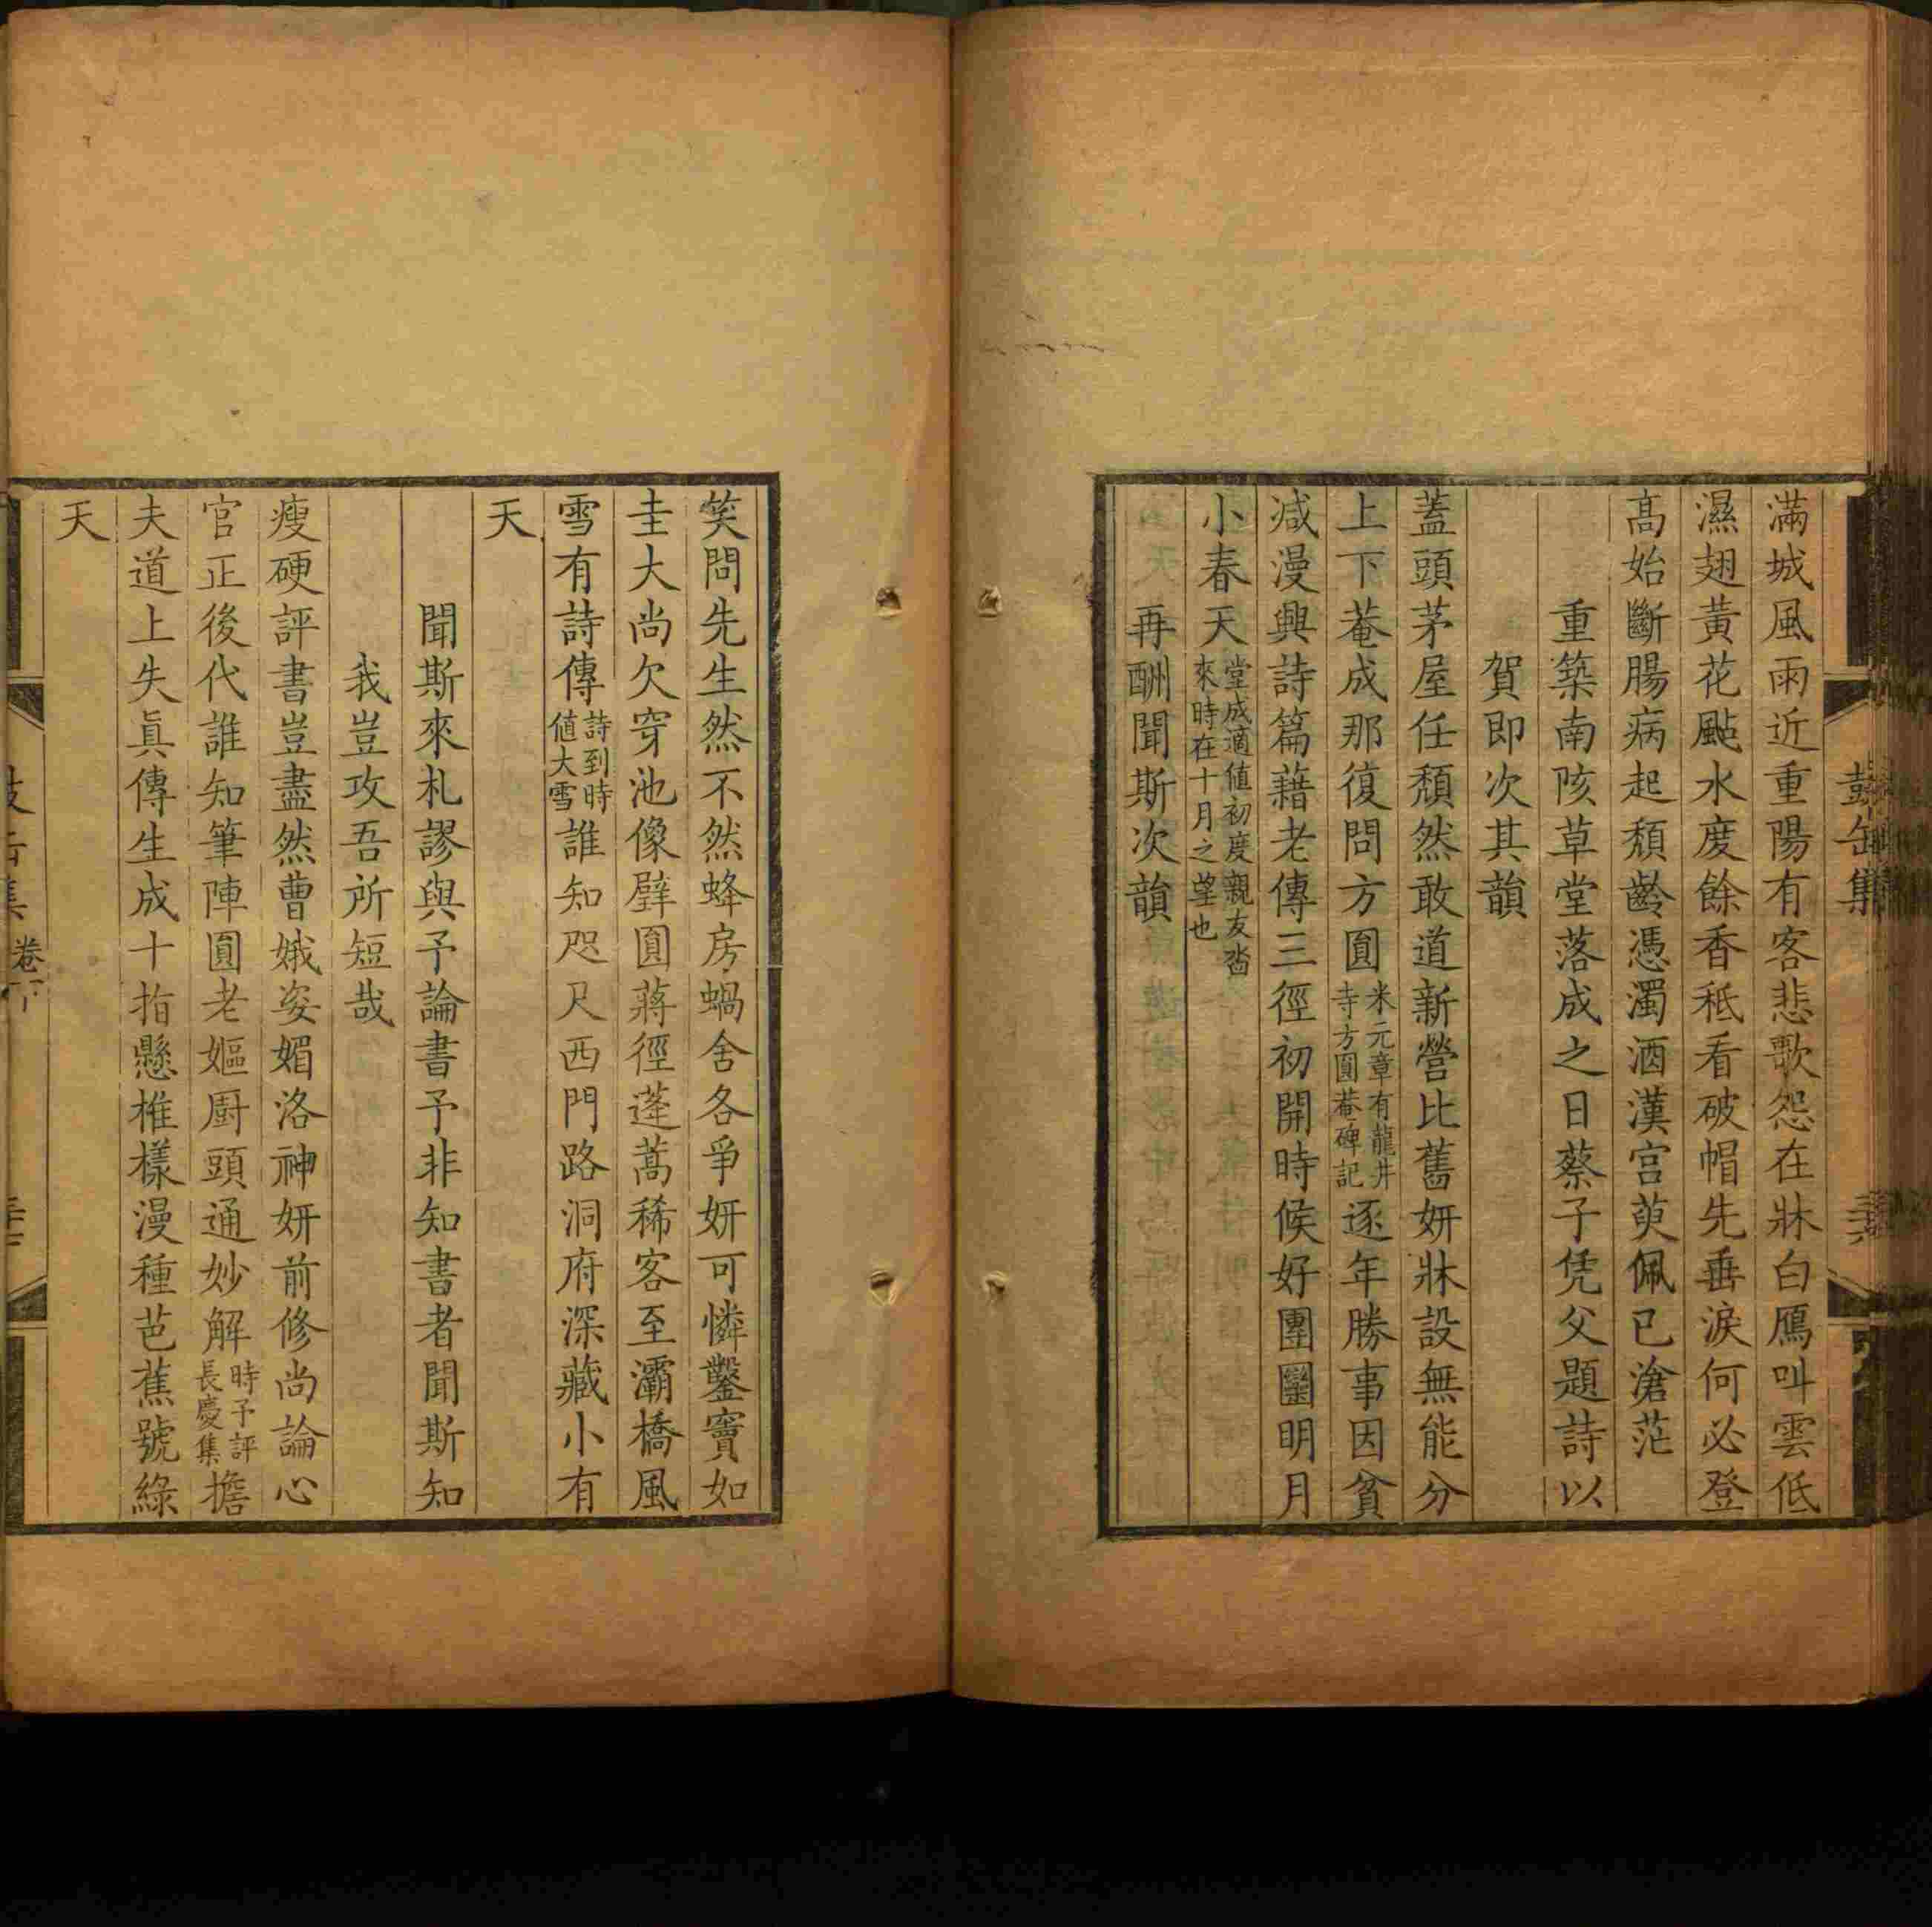 鼓缶集
滿城風雨近重陽有客悲歌怨在牀白鴈叫雲低
濕翅黃花颭水度餘香秪看破帽先垂淚何必登
高始斷腸病起頹齡憑濁酒漢宮萸佩已滄茫
重築南陔草堂落成之日蔡子凭父題詩以
賀即次其韻
蓋頭茅屋任頹然敢道新營比舊妍牀設無能分
上下菴成那復問方圓米元章有龍井寺方圓菴碑記逐年勝事因貧
減漫興詩篇藉老傳三徑初開時候好團圞明月
小春天堂成適値初度親友沓來時在十月之望也
再酬聞斯次韻
笑問先生然不然蜂房蝸舍各爭妍可憐鑿竇如
圭大尚欠穿池像璧圓蔣徑蓬蒿稀客至灞橋風
雪有詩傳詩到時値大雪誰知咫尺西門路洞府深藏小有
天
聞斯來札謬與予論書予非知書者聞斯知
我豈攻吾所短哉
瘦硬評書豈盡然曹娥姿媚洛神妍前修尚論心
官正後代誰知筆陣圓老嫗厨頭通妙解時予評長慶集擔
夫道上失眞傳生成十指懸椎樣漫種芭蕉號綠
天
卷下